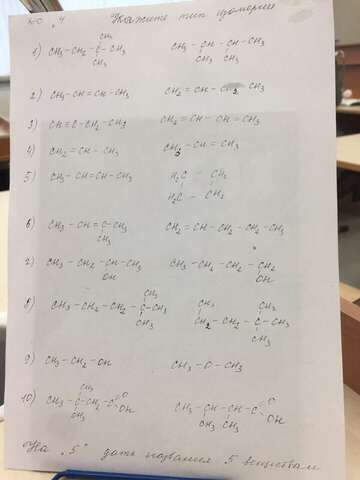 № 4 Укажите тип изомерии
CH3
1) CH3-CH2-C-CH3 CH3-CH-CH-CH3
CH3 CH3 CH3
2) CH3-CH=CH-CH3 CH2=CH-CH2-CH3
3) CH≡C-CH2-CH3 CH2=CH-CH=CH3
4) CH2=CH-CH3 CH3-CH=CH3
5) CH3-CH=CH-CH3 H2C-CH2
H2C-CH2
6) CH3-CH=C-CH3 CH2=CH-CH2-CH2-CH3
CH3
7) CH3-CH2-CH-CH3 CH3-CH2-CH2-CH2
OH OH
CH3 CH3 CH3
8) CH3-CH2-CH2-C-CH3 CH2-CH2-C-CH3
CH3 CH3
9) CH3-CH2-OH CH3-O-CH3
CH3 O O
10) CH3-C-CH2-C OH CH3-CH-CH-C OH
CH3 CH3 CH3
На „5" дать названия 5 веществам